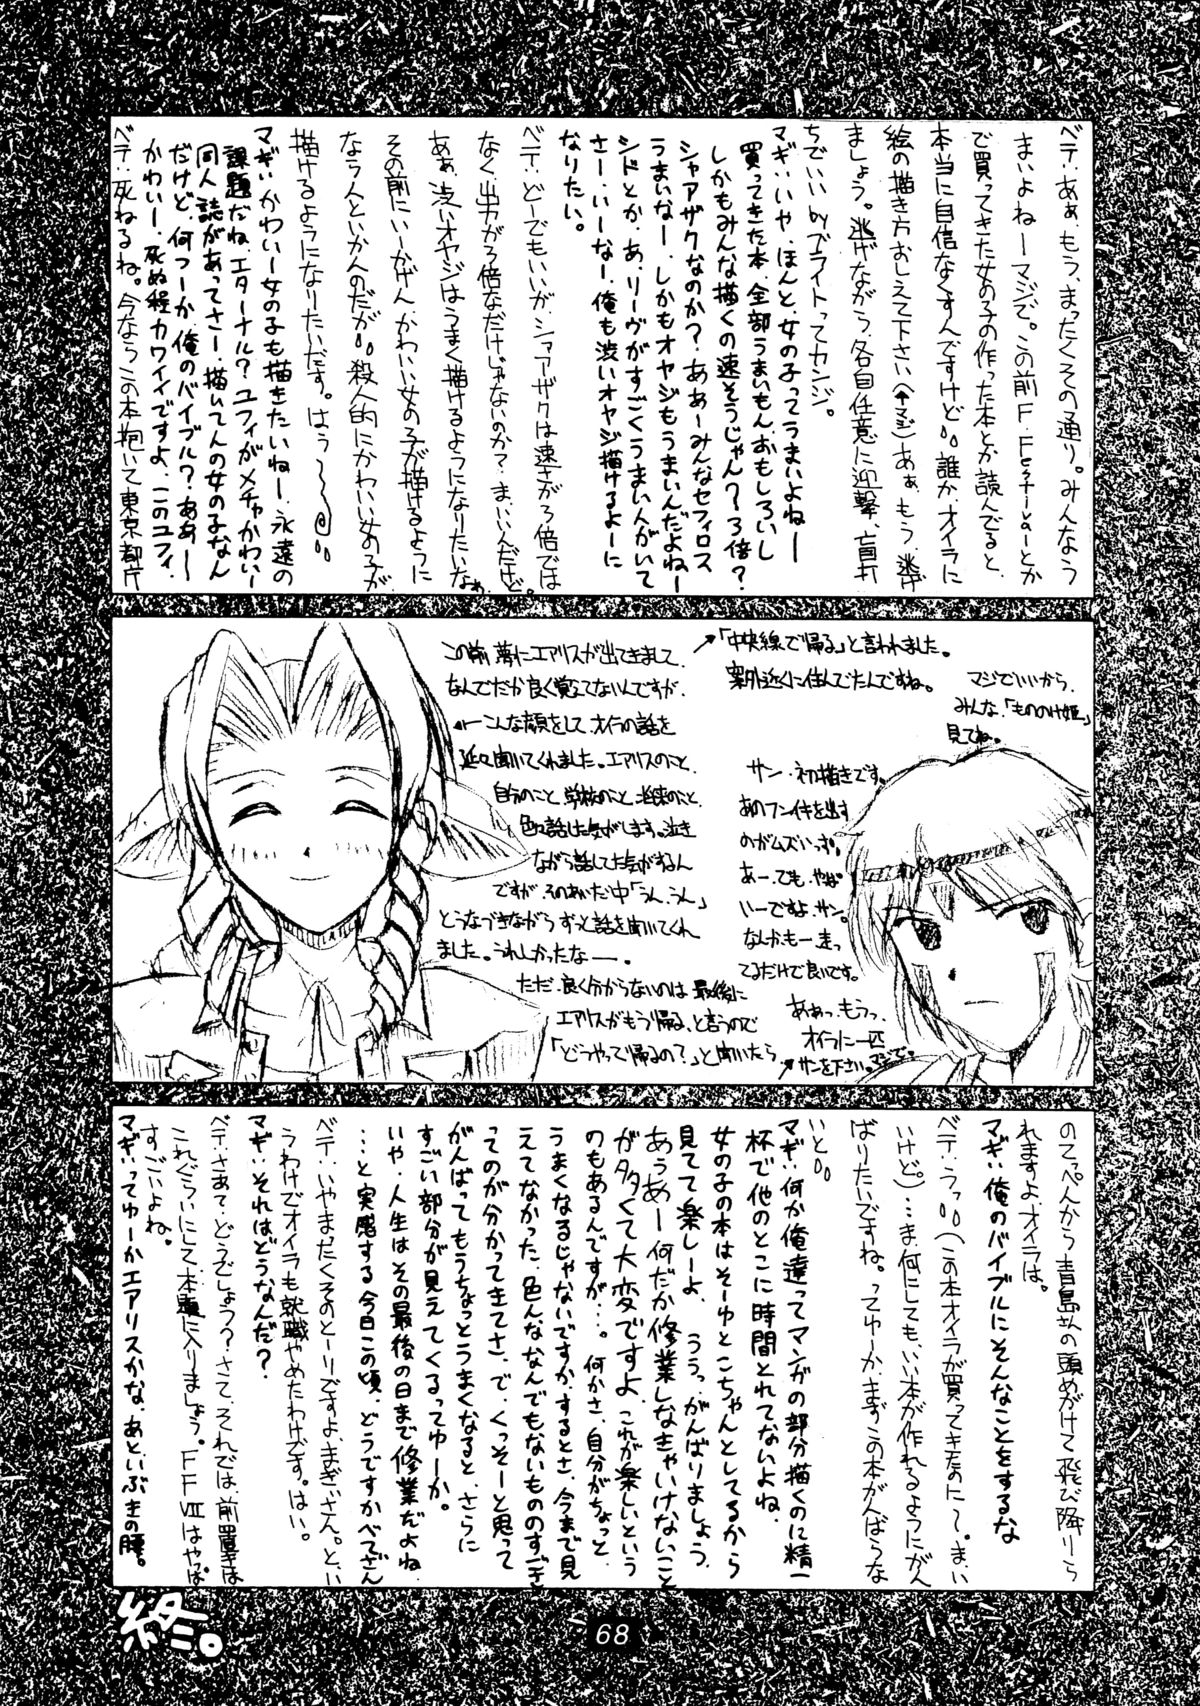 ベテ‥あぁ、もう、まったくその通り。みんなう
まいよねーマジで。この前F.Festaーとか
で買ってきた女の子の作った本とか読んでると、
本当に自信なくすんですけど‥誰か、オイラに
絵の描き方おしえて下さい(↑マジ)あぁ、もう、逃げ
ましょう。逃げながら、各自任意に迎撃、盲打
ちでいいbyブライトってカンジ。
マギ‥いや、ほんと、女の子ってうまいよねー
買ってきた本、全部うまいもん、おもしろいし
しかもみんな描くの速そうじゃん?3倍?
シャアザクなのか?ああーみんなセフィロス
うまいなー、しかもオヤジもうまいんだよねー
シドとか、あ、リーヴがすごくうまい人がいて
さー、いーなー、俺も渋いオヤジ描けるよーに
なりたい。
ベテ‥どーでもいいが、シャアザクは速さが3倍では
なく、出力が3倍なだけじゃないのか?ま、いいんだけど。
あぁ、渋いオヤジはうまく描けるようになりたいなぁ。
その前にいーかげん、かわいい女の子が描けるように
ならんといかんのだが‥殺人的にかわいい女の子が
描けるようになりたいだす。はぅ〜
マギ‥かわいー女の子も描きたいねー、永遠の
課題だね、エターナル?ユフィがメチャかわいー
同人誌があってさー、描いてんの女の子なん
だけど、何つーか俺のバイブル?ああー
かわいー、死ぬ程カワイイですよ、このユフィ。
ベテ‥死ねるね。今ならこの本抱いて東京都庁
マジでいいから、
みんな、「もののけ姫」
見てね。
サン・初描きです。
あのフン囲件を出す
のがムズいっす。
あー、でも、やっぱ
いーですよ、サン。
なんかもー、走っ
てるだけで良いです。
あぁっ、もうっ、
オイラに一匹
サンを下さい。マジで。
この前、夢にエアリスが出てきまして、
なんでだか良く覚えてないんですが、
←こんな顔をして、オイラの話を
延々聞いてくれました。エアリスのこと、
自分のこと、学校のこと、将来のこと、
色々話した気がします。泣き
ながら話してた気がするん
ですが、そのあいだ中「うん、うん」
とうなづきながら、ずっと話を聞いてくれ
ました。うれしかったなー。
ただ、良く分からないのは、最後に
エアリスがもう「帰る」と言うので
「どうやって帰るの?」と聞いたら
↗「中央線で帰る」と言われました。
案外近くに住んでたんですね。
のてっぺんから青島さんの頭めがけて飛び降りら
れますよ、オイラは。
マギ‥俺のバイブルにそんなことをするな
ベテ‥うっ‥(この本オイラが買ってきたのにて。ま、い
いけど。)…ま、何にしても、いい本が作れるようにがん
ばりたいですね。ってゆーか、まず、この本がんばらな
いと‥
マギ‥何か俺達ってマンガの部分描くのに精一
杯で他のとこに時間とれてないよね、
女の子の本はそーゆとこちゃんとしてるから
見てて楽しーよ、ううっ、がんばりましょう。
あぅあー何だか修業しなきゃいけないこと
が多くて大変ですよ、これが楽しいという
のもあるんですが…。何かさ、自分がちょっと、
うまくなるじゃないですか、するとさ、今まで見
えてなかった、色んな、なんでもないもののすごさ
ってのが分かってきてさ、で、くっそーと思って
がんばってもうちょっとうまくなると、さらに
すごい部分が見えてくるってゆーか。
いや、人生はその最後の日まで修業だよね
…と実感する今日この頃、どうですかべてさん
ベテ‥いやまったくそのとーりですよ、まぎぃさん。と、い
うわけでオイラも就職やめたわけです。はい。
マギ‥それはどうなんだ?
ベテ‥さあて、どうでしょう?さて、それでは、前置きは
これぐらいにして本題に入りましょう。FFⅦはやっぱ
すごいよね。
マギ‥ってゆーかエアリスかな、あといぶきの腰。
終。
68